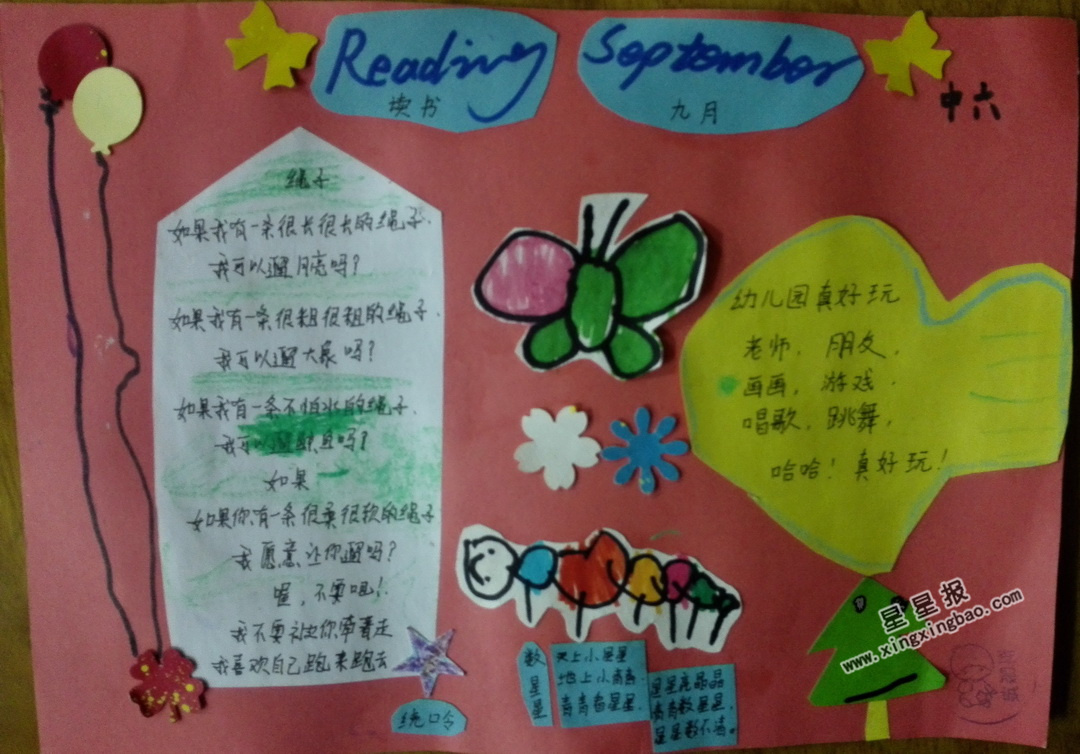 Reading
读书
September
九月
中六
绳子
如果我有一条很长很长的绳子,
我可以遛月亮吗?
如果我有一条很粗很粗的绳子,
我可以遛大象吗?
如果我有一条不怕水的绳子,
我可以遛
吗?
如果
如果你有一条很柔很软的绳子
我愿意让你遛吗?
喔,不要呢!
我不要被你牵着走
我喜欢自己跑来跑去
幼儿园真好玩
老师,朋友,
画画,游戏.
唱歌,跳舞,
哈哈!真好玩!
绕口令
数星星
天上小星星
地上小青青.
青青看星星.
星星亮晶晶
青青数星星,
星星数不清。
星星报
www.xingxingbao.com